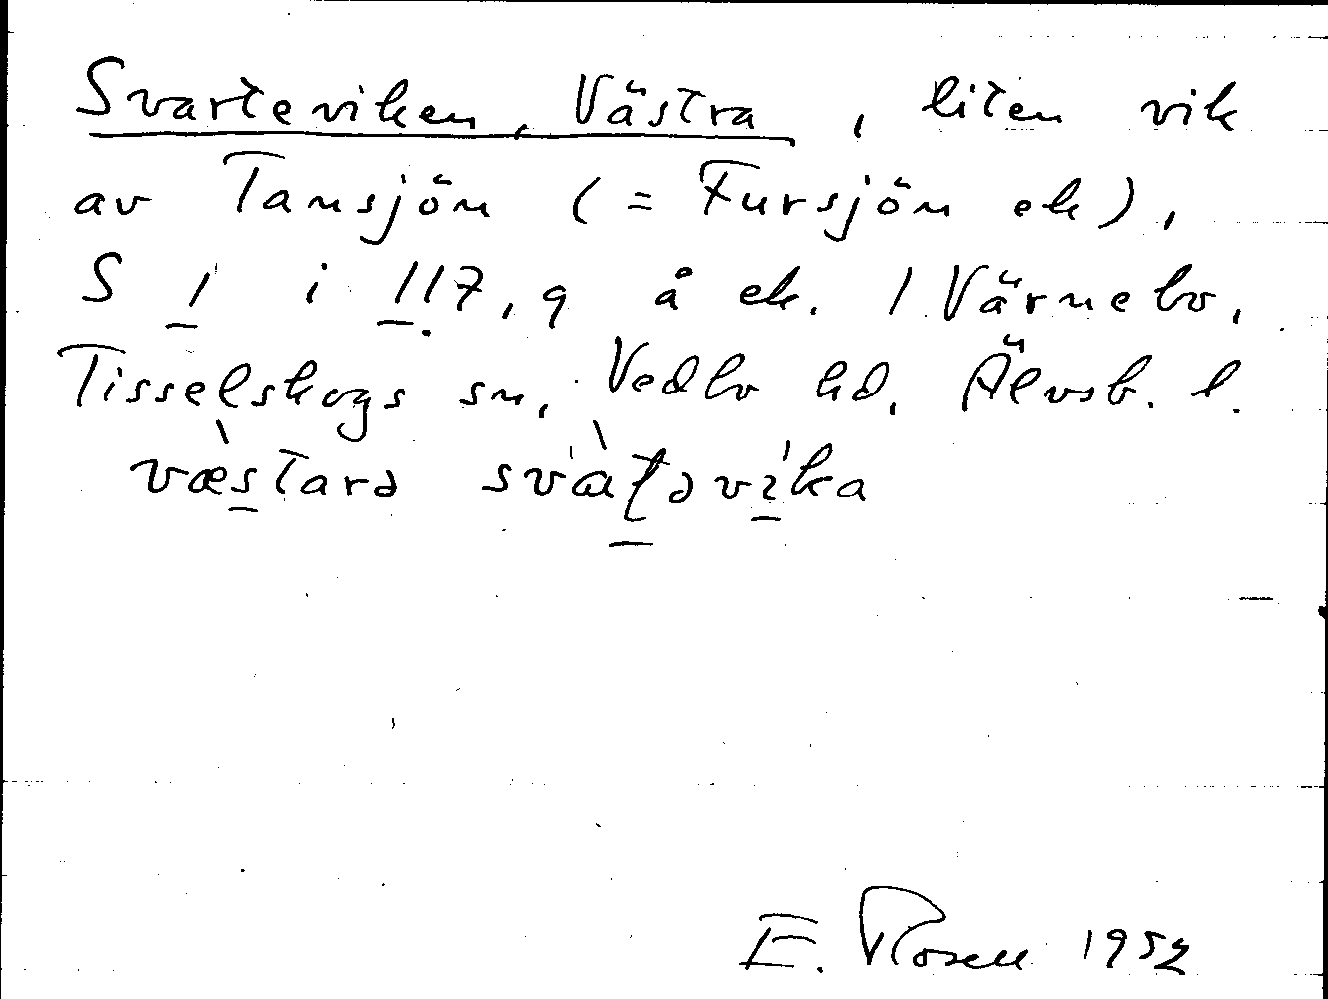 Svarteviken, Västra, liten vik
av Tansjön (= Fursjön ek),
S 1 i 117, 9 å ek. 1 Värnebo,
Tisselskogs sn, Vedbo hd, Älvsb. l.
væ̀starə svàʈəvíka
E. Rosell 1952